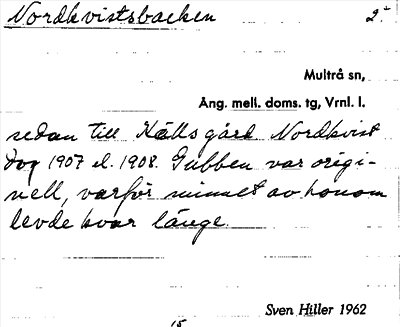 Nordkvistsbacken 2.
Multrå sn,
Ång. mell. doms. tg, Vrnl. l.
sedan till Källsgård Nordkvist
dog 1907 el. 1908. Gubben var origi-
nell, varför minnet av honom
levde kvar länge.
Sven Hiller 1962
15